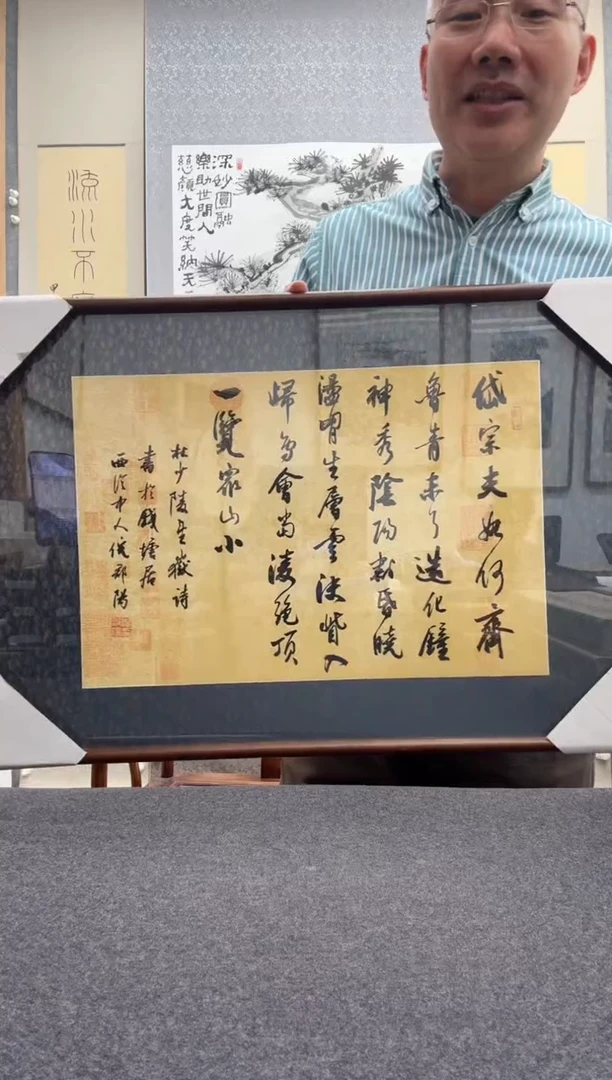 深妙圓融
樂助世間人
慈顏大度笑納天
流水不
岱宗夫如何齊
魯青未了造化鐘
神秀陰陽割昏曉
盪胷生層雲決眥入
歸鳥會當凌絕頂
一覽眾山小
杜少陵望嶽詩
書於錢塘居
西泠中人倪郡陽